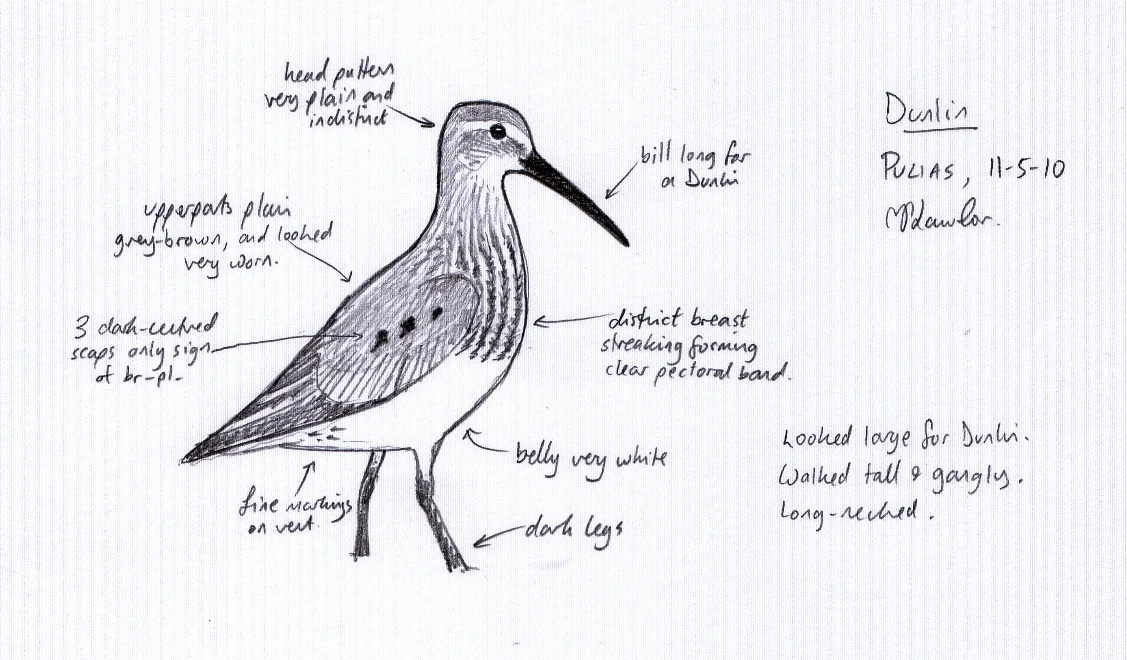 head pattern
very plain and
indistinct
Dunlin
PULIAS, 11-5-10
MLawlor.
bill long for
a Dunlin
upperparts plain
grey-brown, and looked
very worn.
3 dark-centred
scaps only sign
of br-pl.
distinct breast
streaking forming
clear pectoral band.
belly very white
Looked large for Dunlin.
Walked tall & gangly.
Long-necked.
fine markings
on vent.
dark legs